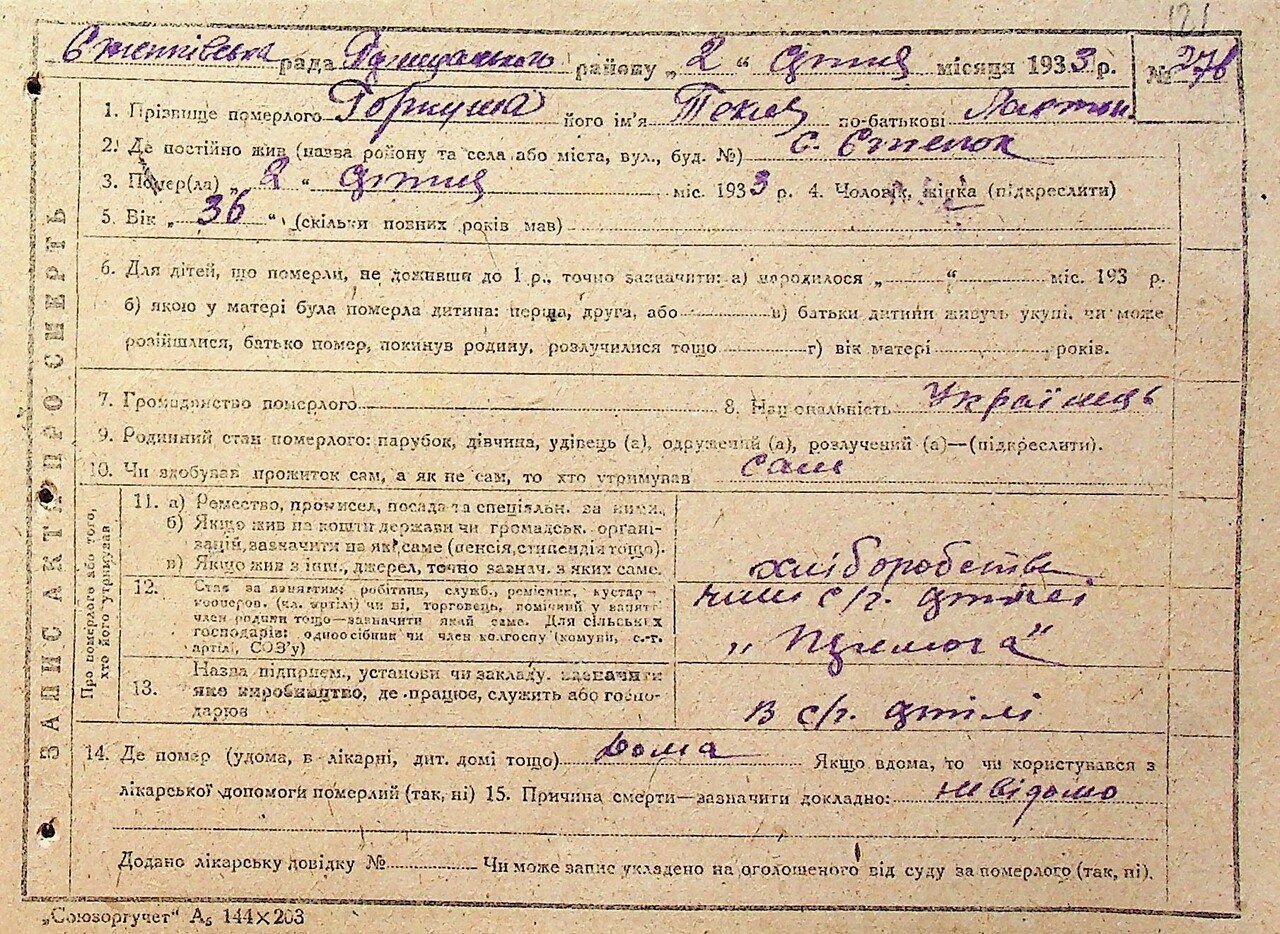 121
рада району „2“ місяця 1933 р. № 276
1. Прізвище померлого Горкуша його ім'я Текля по-батькові
2. Де постійно жив (назва району та села або міста, вул., буд. №) с. Степок
3. Помер(ла) „2“ міс. 1933 р. 4. Чоловік, жінка (підкреслити)
5. Вік „36“ (скільки повних років мав)
6. Для дітей, що померли, не доживши до 1 р., точно зазначити: а) народилося „ “ міс. 193 р.
б) якою у матері була померла дитина: перша, друга, або в) батьки дитини живуть укупі, чи може
розійшлися, батько помер, покинув родину, розлучилися тощо г) вік матері років.
7. Громадянство померлого 8. Національність Українець
9. Родинний стан померлого: парубок, дівчина, удівець (а), одружений (а), розлучений (а)—(підкреслити).
10. Чи здобував прожиток сам, а як не сам, то хто утримував сам
ЗАПИС АКТА ПРО СМЕРТЬ
Про померлого або того, хто його утримував
11. а) Ремество, промисел, посада та спеціяльн. за ними.
б) Якщо жив на кошти держави чи громадськ. органі-
зацій, зазначити на які саме (пенсія, стипендія тощо).
в) Якщо жив з інш., джерел, точно зазнач. з яких саме.
хліборобство
12. Стан за заняттям: робітник, служб., ремісник, кустар—
кооперов. (чл. артілі) чи ні, торговець, помічний у занятт.
член родини тощо—зазначити який саме. Для сільських
господарів: одноосібник чи член колгоспу (комуни, с.-г.
артілі, СОЗ'у)
член с/г. артілі
Назва підприєм., установи чи закладу, зазначити
13. яке виробництво, де працює, служить або госпо-
дарює
в с/г. артілі
14. Де помер (удома, в лікарні, дит. домі тощо) Дома Якщо вдома, то чи користувався з
лікарської допомоги померлий (так, ні) 15. Причина смерти—зазначити докладно: невідомо
Додано лікарську довідку № Чи може запис укладено на оголошеного від суду за померлого (так, ні).
„Союзоргучет“ А₅ 144×203